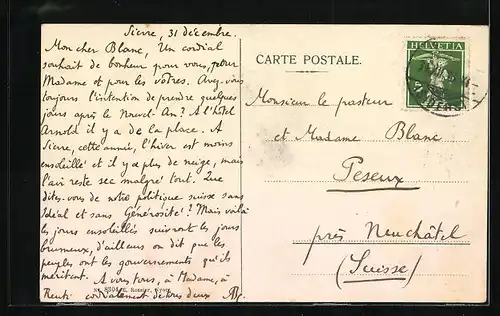 Sierre, 31 décembre.
Mon cher Blanc, Un cordial
souhait de bonheur pour vous, pour
Madame et pour les vôtres. Avez-vous
toujours l'intention de prendre quelques
jours après le Nouvel-An? A l'hôtel
Arnold il y a de la place. A
Sierre, cette année, l'hiver est moins
ensoleillé et il y a plus de neige, mais
l'air reste sec malgré tout. Que
dites-vous de notre politique suisse sans
Idéal et sans Générosité? Mais voilà
les jours ensoleillés suivront les jours
brumeux, d'ailleurs on dit que les
peuples ont les gouvernements qu'ils
méritent. A vous tous, à Madame, à
cordialement de tous deux
CARTE POSTALE.
HELVETIA
Monsieur le pasteur
et Madame Blanc
Peseux
près Neuchâtel
(Suisse)